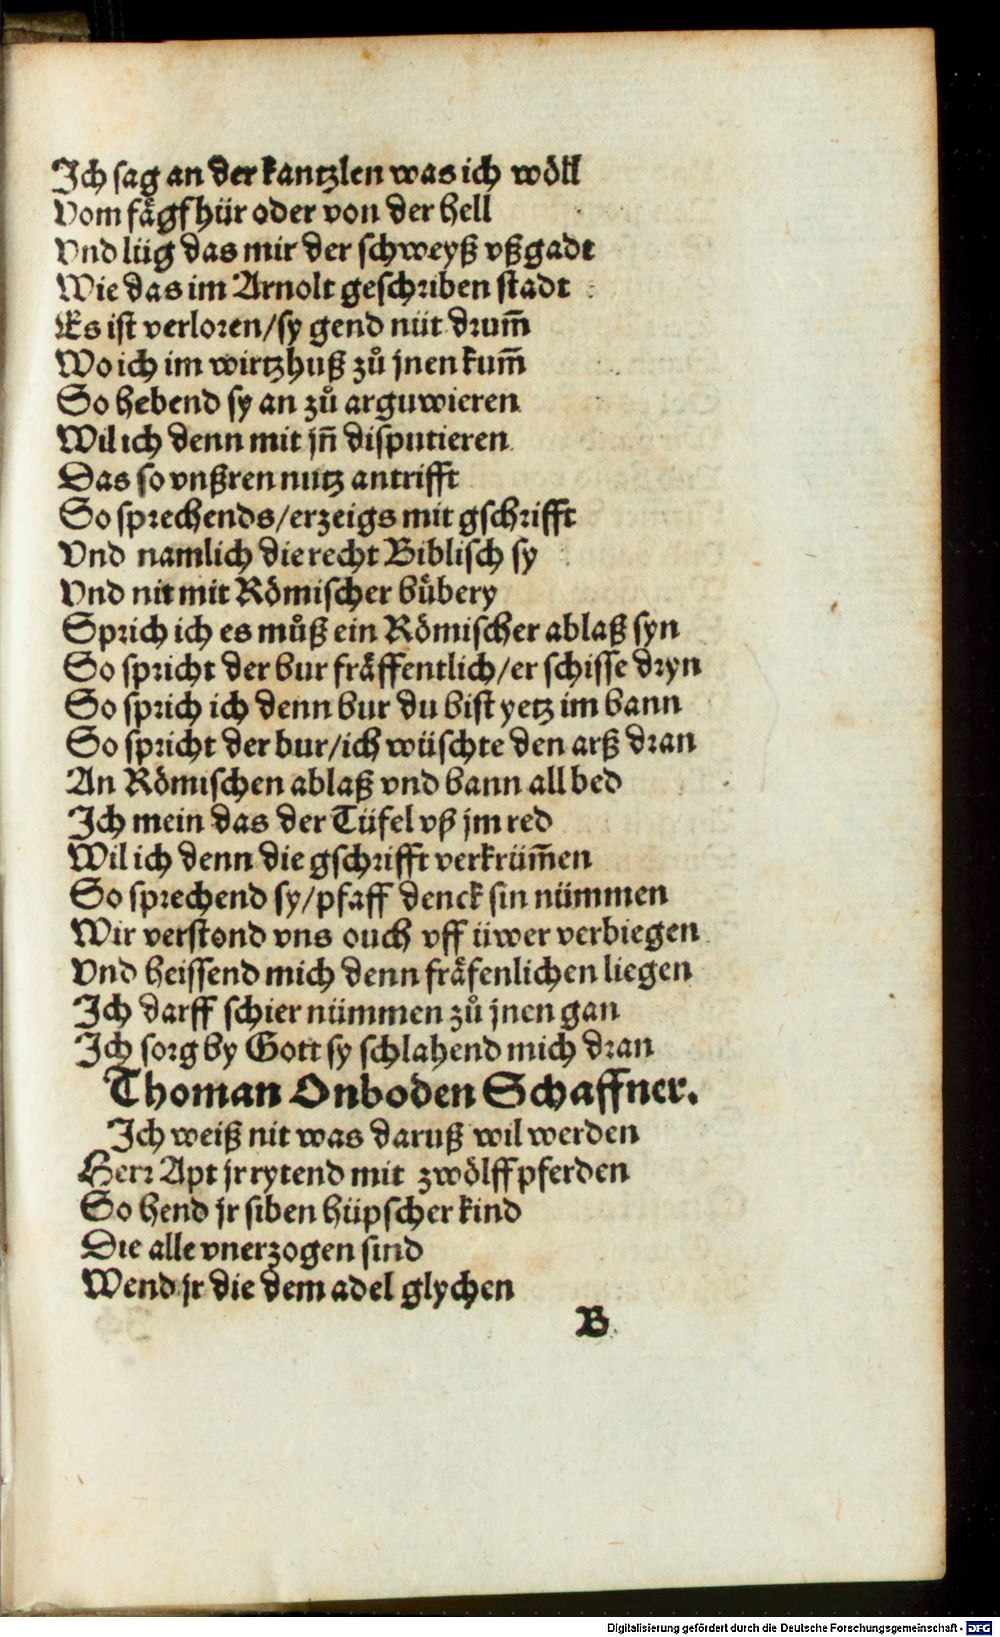 Ich sag an der kantzlen was ich wöll
Vom fägfhür oder von der hell
Vnd lüg das mir der schweyß vßgadt
Wie das im Arnolt geschriben stadt
Es ist verloren/sy gend nüt drum̄
Wo ich im wirtzhuß zů jnen kum̄
So hebend sy an zů arguwieren
Wil ich denn mit jn̄ disputieren
Das so vnßren nutz antrifft
So sprechends/erzeigs mit gschrifft
Vnd namlich die recht Biblisch sy
Vnd nit mit Römischer bůbery
Sprich ich es můß ein Römischer ablaß syn
So spricht der bur fräffentlich/er schisse dryn
So sprich ich denn bur du bist yetz im bann
So spricht der bur/ich wüschte den arß dran
An Römischen ablaß vnd bann all bed
Ich mein das der Tüfel vß jm red
Wil ich denn die gschrifft verkrüm̄en
So sprechend sy/pfaff denck sin nümmen
Wir verstond vns ouch vff üwer verbiegen
Vnd heissend mich denn fräfenlichen liegen
Ich darff schier nümmen zů jnen gan
Ich sorg by Gott sy schlahend mich dran
Thoman Onboden Schaffner.
Ich weiß nit was daruß wil werden
Herr Apt jr rytend mit zwölff pferden
So hend jr siben hüpscher kind
Die alle vnerzogen sind
Wend jr die dem adel glychen
B
Digitalisierung gefördert durch die Deutsche Forschungsgemeinschaft - DFG